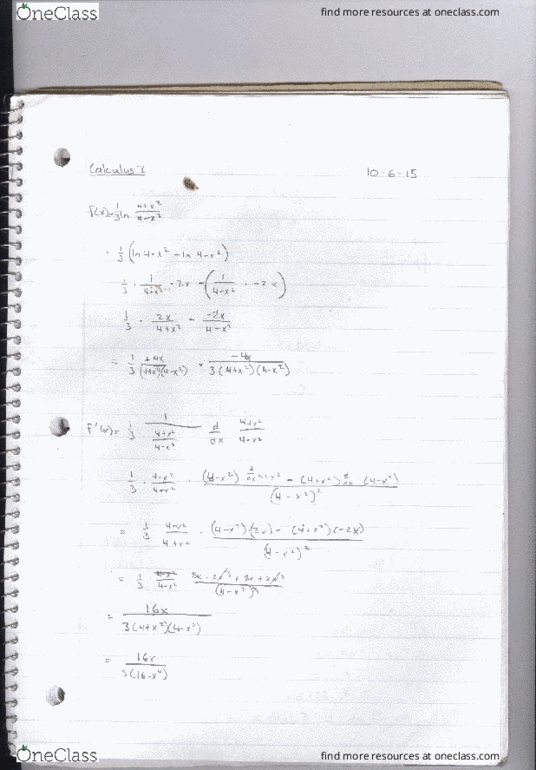 OneClass
find more resources at oneclass.com
Calculus 1
10-6-15
f(x)= 1/3 ln (4+x²)/(4-x²)
1/3 (ln 4+x² - ln 4-x²)
1/3 · 1/(4+x²) · 2x - (1/(4-x²) · -2x)
1/3 · 2x/(4+x²) - -2x/(4-x²)
f'(x)= 1/3 1/((4+x²)/(4-x²)) d/dx (4+x²)/(4-x²)
1/3 · (4-x²)/(4+x²) · ((4-x²) d/dx 4+x² - (4+x²) d/dx (4-x²))/(4-x²)²
= 1/3 (4-x²)/(4+x²) · ((4-x²)(2x) - (4+x²)(-2x))/(4-x²)²
= 16x/(3(4+x²)(4-x²))
= 16x/(3(16-x⁴))
OneClass
find more resources at oneclass.com